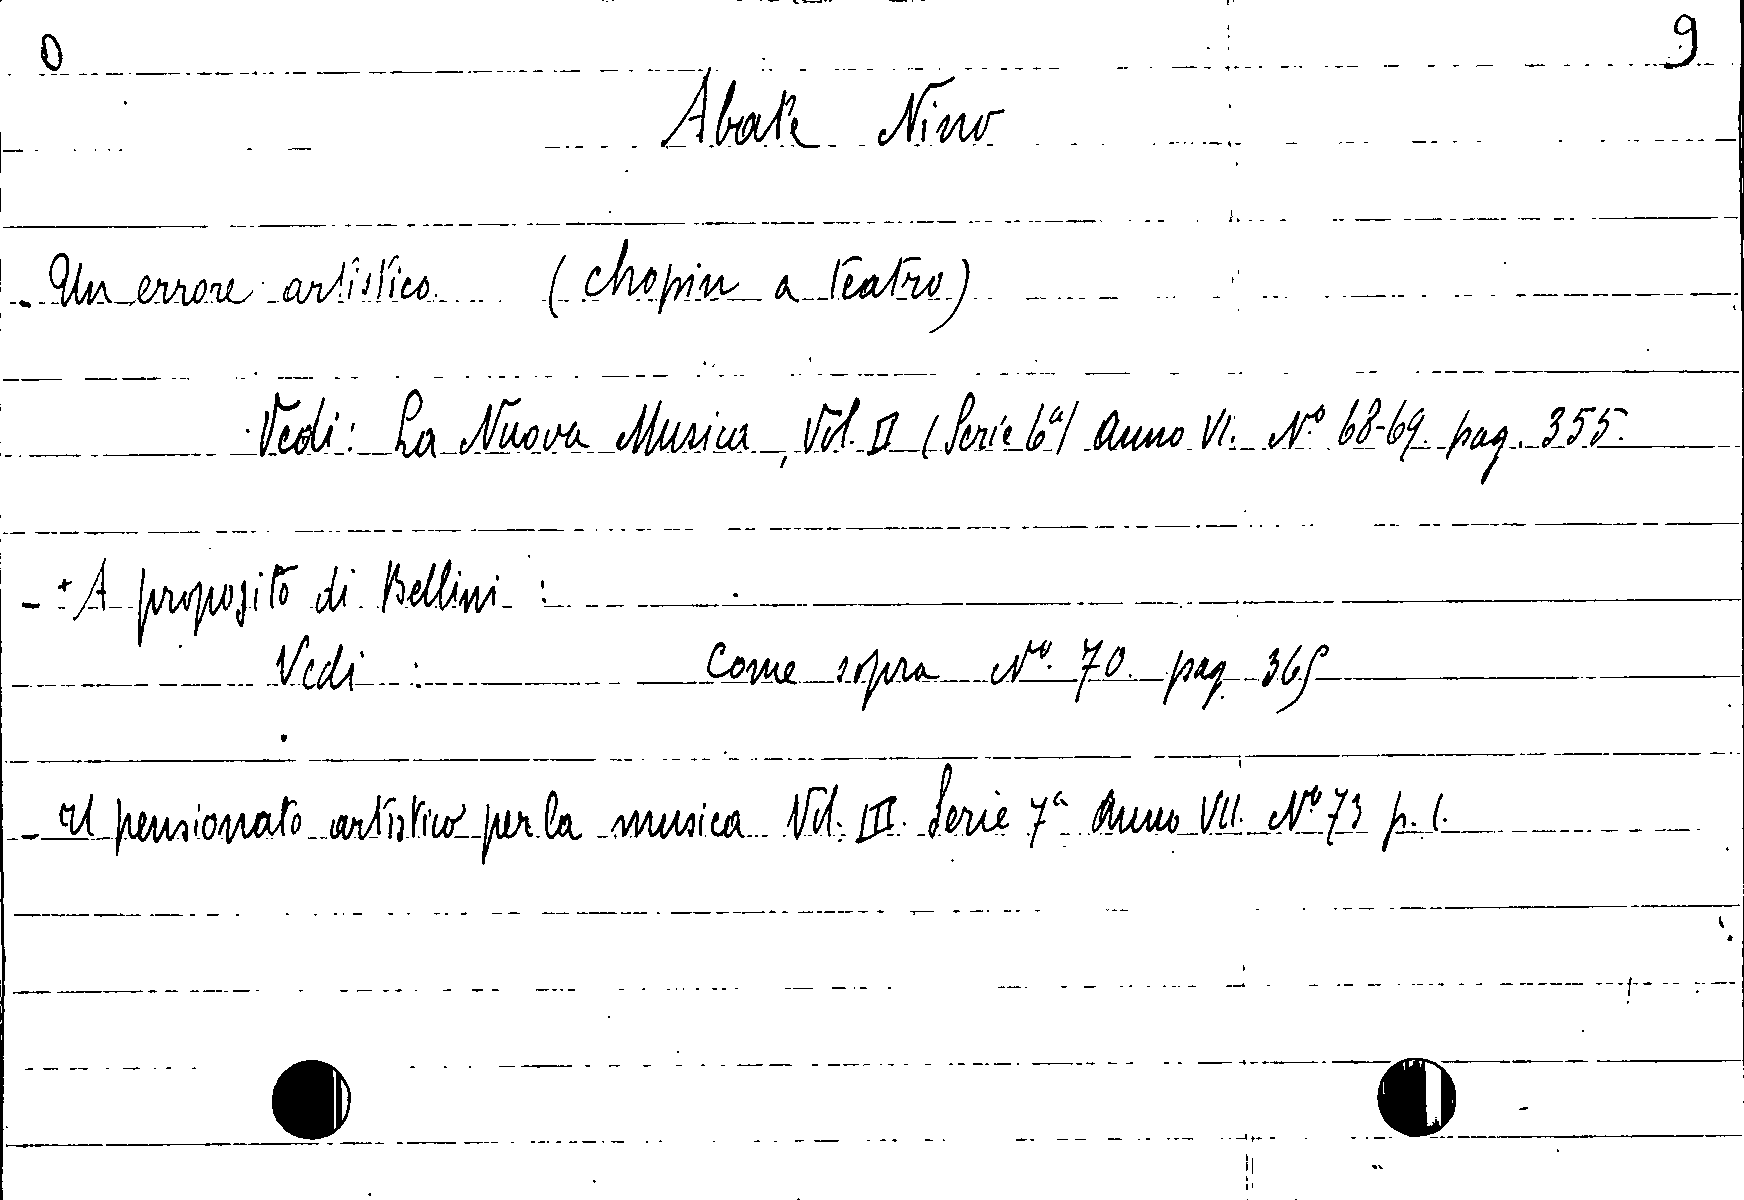 0 9
Abate Nino
- Un errore artistico (Chopin a teatro)
Vedi: La Nuova Musica, Vol. II (Serie 6ª) Anno VI. Nº 68-69. pag. 355.
- + A proposito di Bellini :
Vedi : Come sopra Nº. 70. pag. 365
- Il pensionato artistico per la musica Vol. III. Serie 7ª Anno VII. Nº 73 p. 1.